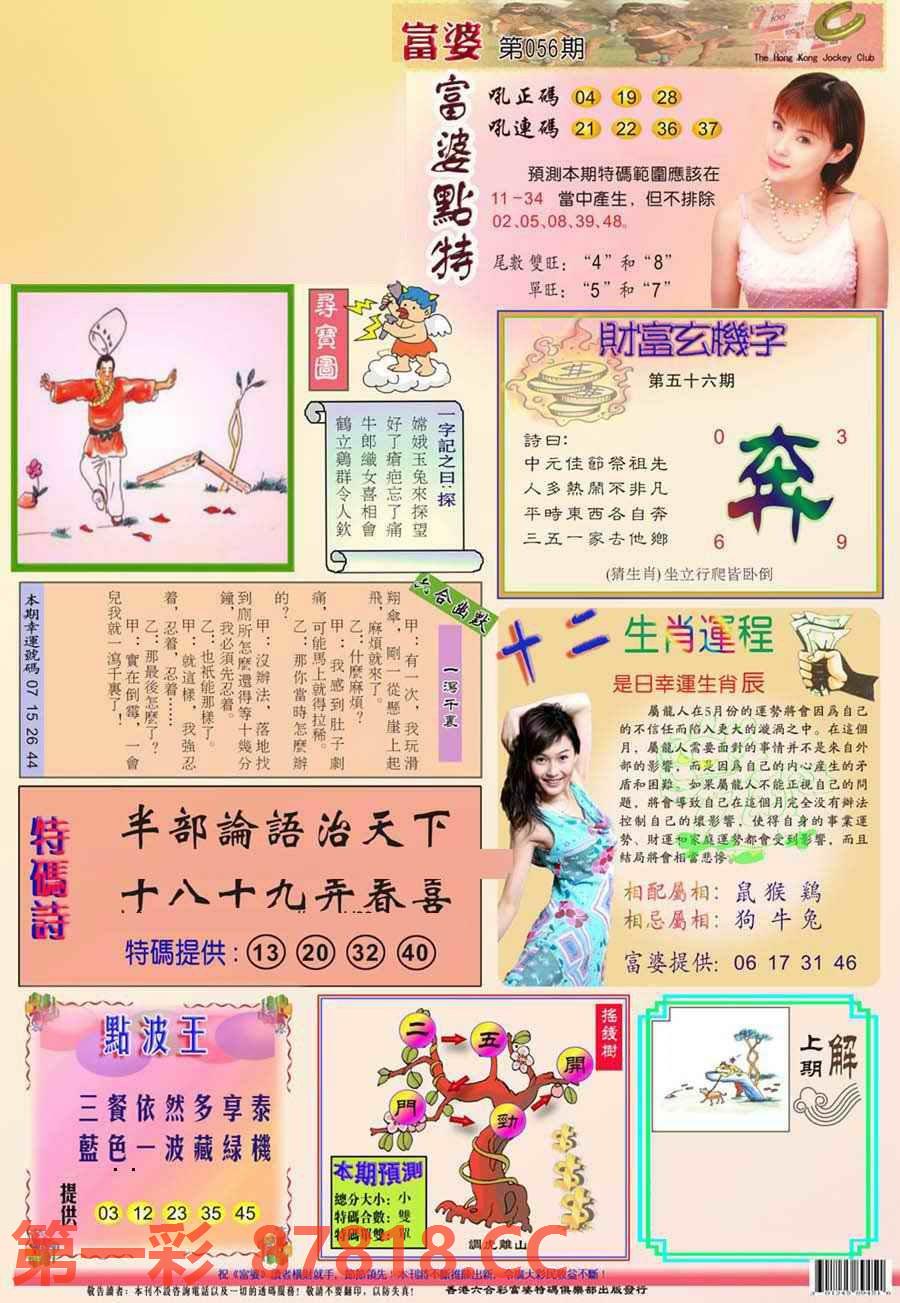 富婆 第056期
The Hong Kong Jockey Club
富婆點特
吼正碼 04 19 28
吼連碼 21 22 36 37
預測本期特碼範圍應該在
11-34 當中產生，但不排除
02、05、08、39、48。
尾數雙旺：“4”和“8”
單旺：“5”和“7”
尋寶圖
一字記之曰：探
嫦娥玉兔來探望
好了瘡疤忘了痛
牛郎織女喜相會
鶴立鷄群令人欽
財富玄機字
第五十六期
詩曰：
中元佳節祭祖先
人多熱鬧不非凡
平時東西各自奔
三五一家去他鄉
0 3
奔
6 9
(猜生肖)坐立行爬皆卧倒
六合幽默
一瀉千裏
甲：有一次，我玩滑
翔傘，剛一從懸崖上起
飛，麻煩就來了。
乙：什麼麻煩？
甲：我感到肚子劇
痛，可能馬上就得拉稀。
乙：那你當時怎麽辦
的？
甲：沒辦法，落地找
到厠所怎麽還得等十幾分
鐘，我必須先忍着。
乙：也衹能那樣了。
甲：就這樣，我強忍
着，忍着，忍着……
乙：那最後怎麽了？
甲：實在倒霉，一會
兒我就一瀉千裏了！
本期幸運號碼 07 15 26 44
十二生肖運程
是日幸運生肖辰
屬龍人在5月份的運勢將會因爲自己
的不信任而陷入更大的漩渦之中。在這個
月，屬龍人需要面對的事情并不是來自外
部的影響，而是因爲自己的内心産生的矛
盾和困難，如果屬龍人不能正視自己的問
題，將會導致自己在這個月完全没有辦法
控制自己的壞影響，使得自身的事業運
勢、財運和家庭運勢都會受到影響，而且
結局將會相當悲慘。
相配屬相：鼠 猴 鷄
相忌屬相：狗 牛 兔
富婆提供：06 17 31 46
特碼詩
半部論語治天下
十八十九弄春喜
特碼提供：13 20 32 40
點波王
三餐依然多享泰
藍色一波藏緑機
提供
03 12 23 35 45
搖錢樹
二 五
開
門 勁
本期預測
總分大小：小
特碼合數：雙
特碼單雙：單
調虎離山
上期解
第一彩 87818.CC
祝《富婆》讀者橫財就手，節節領先！本刊將不斷推陳出新，令廣大彩民收益不斷！
敬告讀者：本刊不設咨詢電話以及一切的透碼服務！敬請不要翻印，以防失真！
香港六合彩富婆特碼俱樂部出版發行